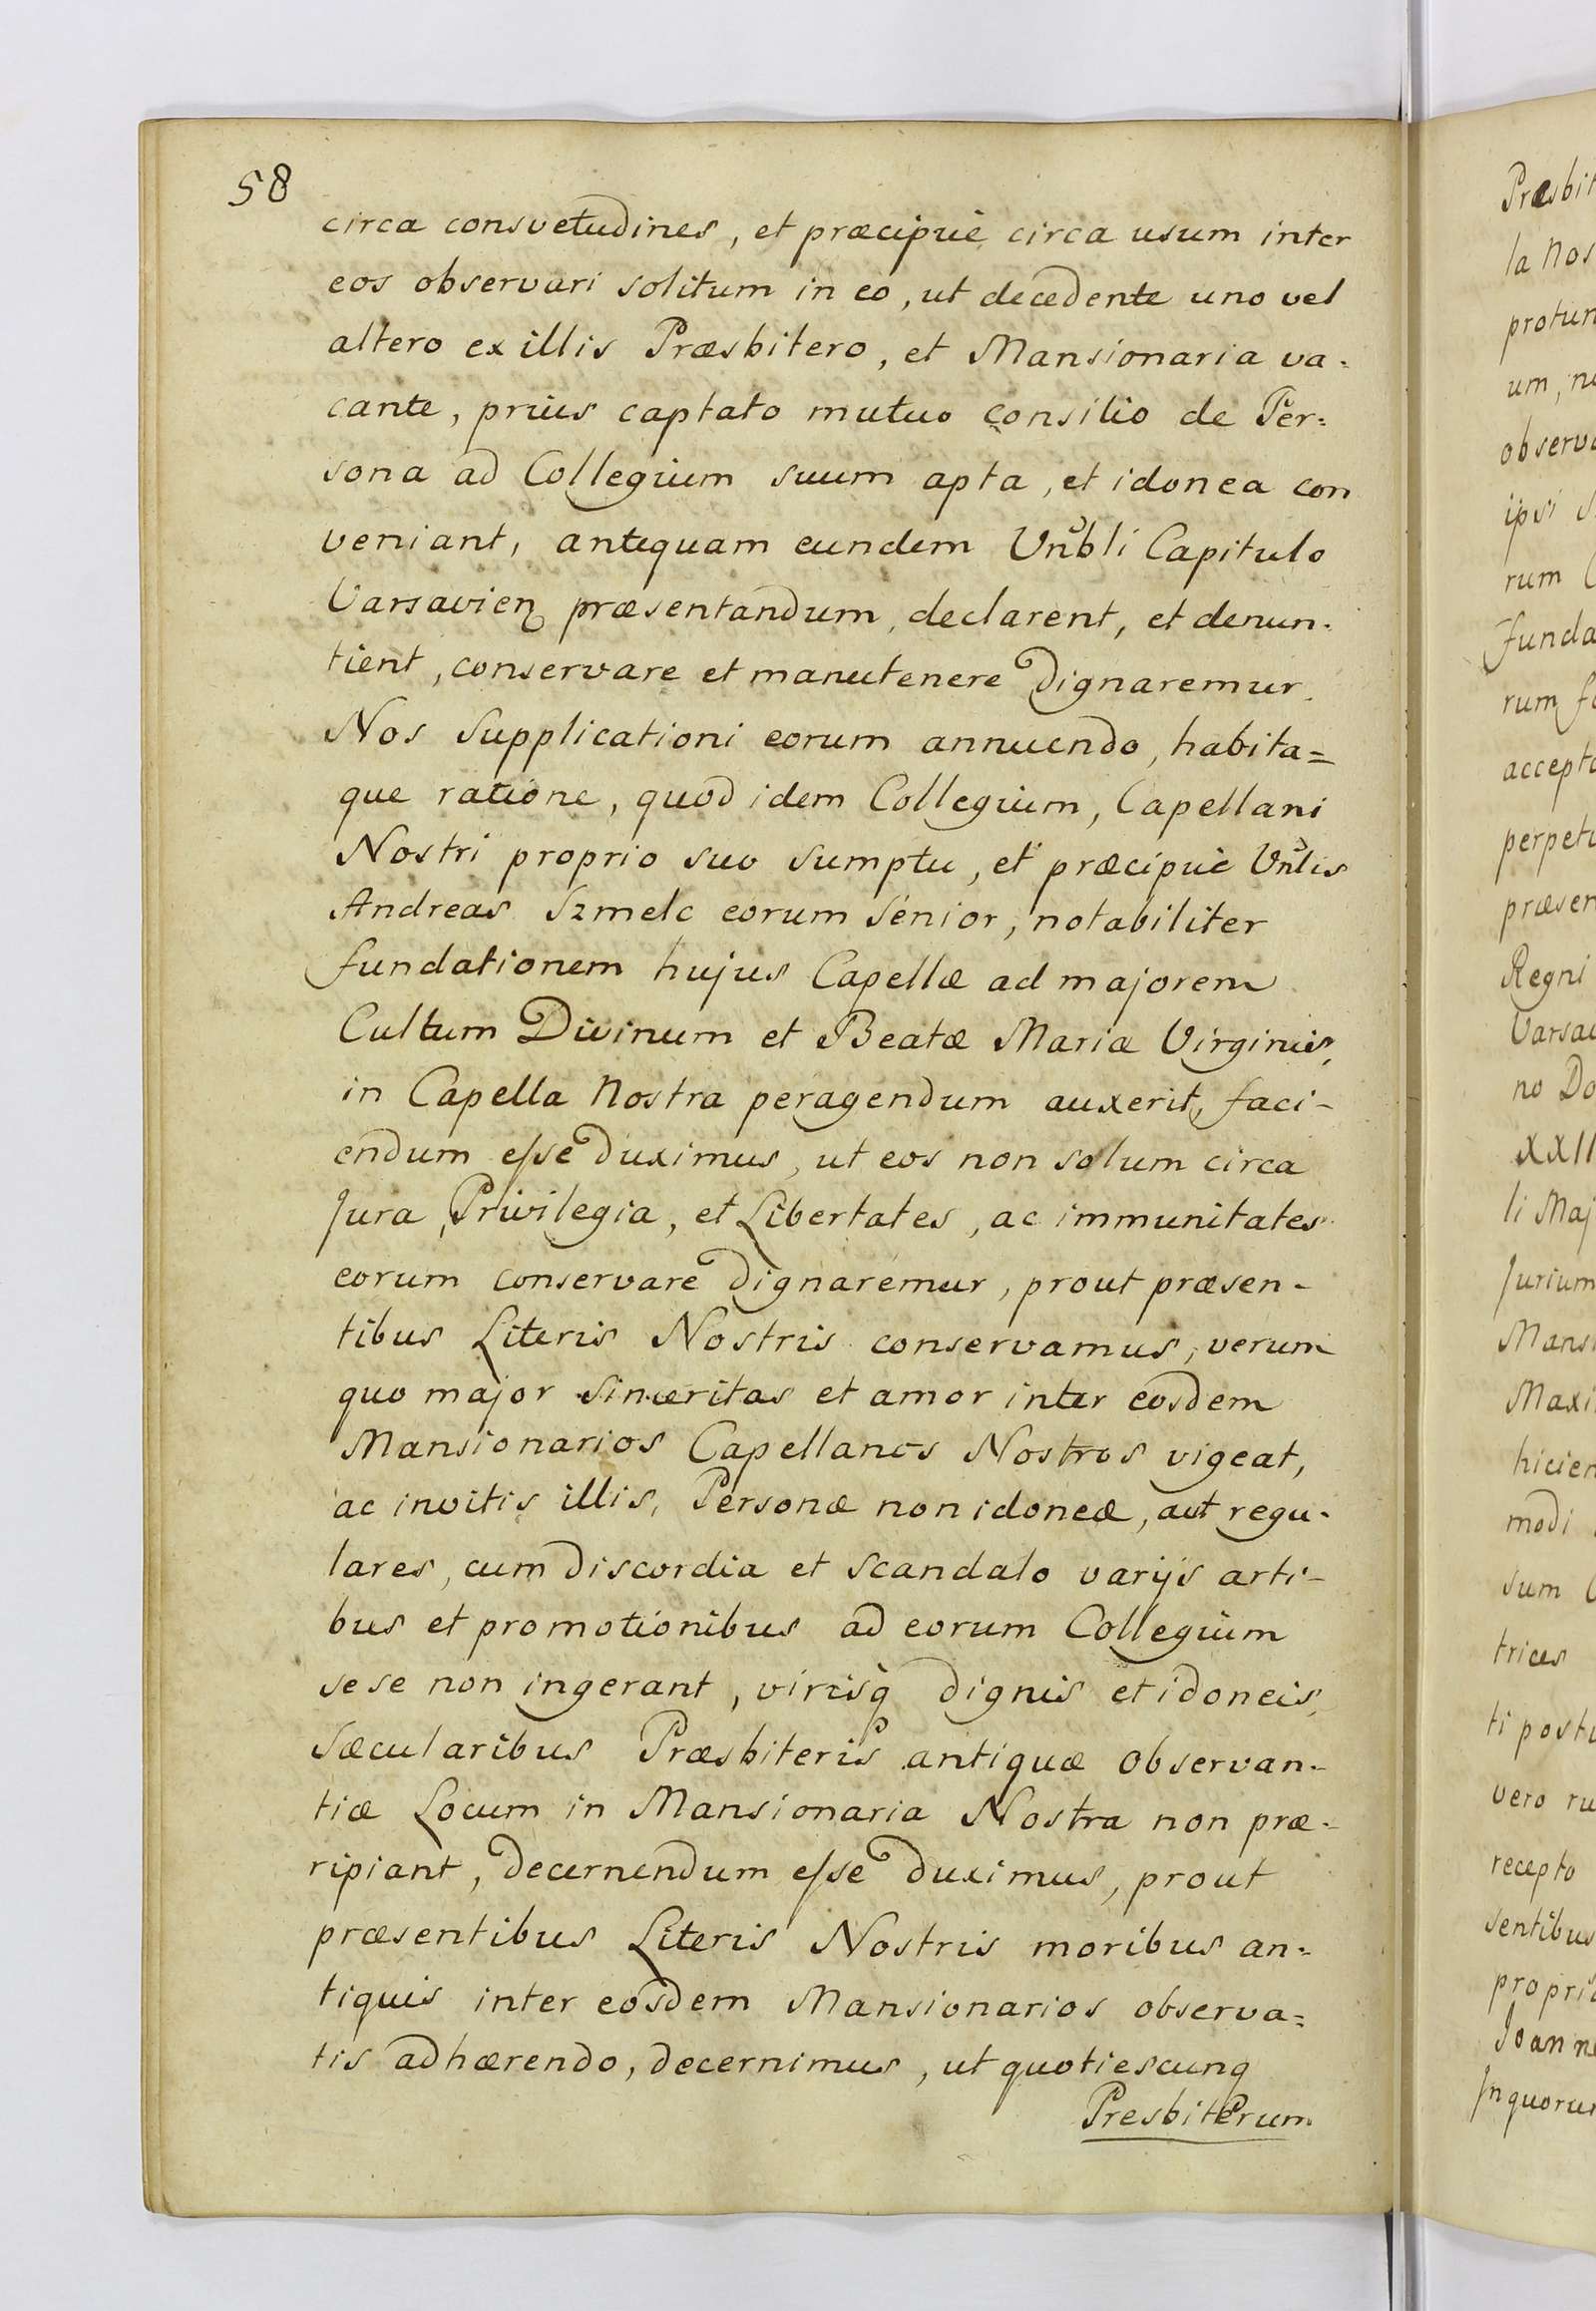 58
circa consvetudines, et præcipuè circa usum inter
eos observari solitum in eo, ut decedente uno vel
altero ex illis Præsbitero, et Mansionaria va-
cante, priùs captato mutuo consilio de Per-
sona ad Collegium suum apta, et idonea con
veniant, antequam eundem Vnbli Capitulo
Varsavien præsentandum, declarent, et denun-
tient, conservare et manutenere dignaremur.
Nos Supplicationi eorum annuendo, habita=
que ratione, quod idem Collegium, Capellani
Nostri proprio suo sumptu, et præcipuè Vnlis
Andreas Szmelc eorum Senior, notabiliter
fundationem hujus Capellæ ad majorem
Cultum Divinum et Beatæ Mariæ Virginis,
in Capella Nostra peragendum auxerit, faci-
endum esse duximus, ut eos non solum circa
Jura, Privilegia, et Libertates, ac immunitates
eorum conservare dignaremur, prout præsen-
tibus Literis Nostris conservamus, verum
quo major sinceritas et amor inter eosdem
Mansionarios Capellanos Nostros vigeat,
ac invitis illis, Personæ non idoneæ, aut regu-
lares, cum discordia et scandalo varijs arti-
bus et promotionibus ad eorum Collegium
sese non ingerant, virisq dignis et idoneis,
Sæcularibus Præsbiteris antiquæ observan-
tiæ Locum in Mansionaria Nostra non præ-
ripiant, decernendum esse duximus, prout
præsentibus Literis Nostris moribus an-
tiquis inter eosdem Mansionarios observa=
tis adhærendo, decernimus, ut quotiescunq
Presbiterum
Præsbit
la Nos
protun
um, n
observa
ipsi
rum
funda
rum
accepta
perpetu
præsen
Regni
Varsav
no Do
XXII
li Maj
Jurium
Mansi
Maxi
hicien
modi
sum
trices
ti postu
vero ru
recepto
sentibus
propri
Joanne
Jn quorum